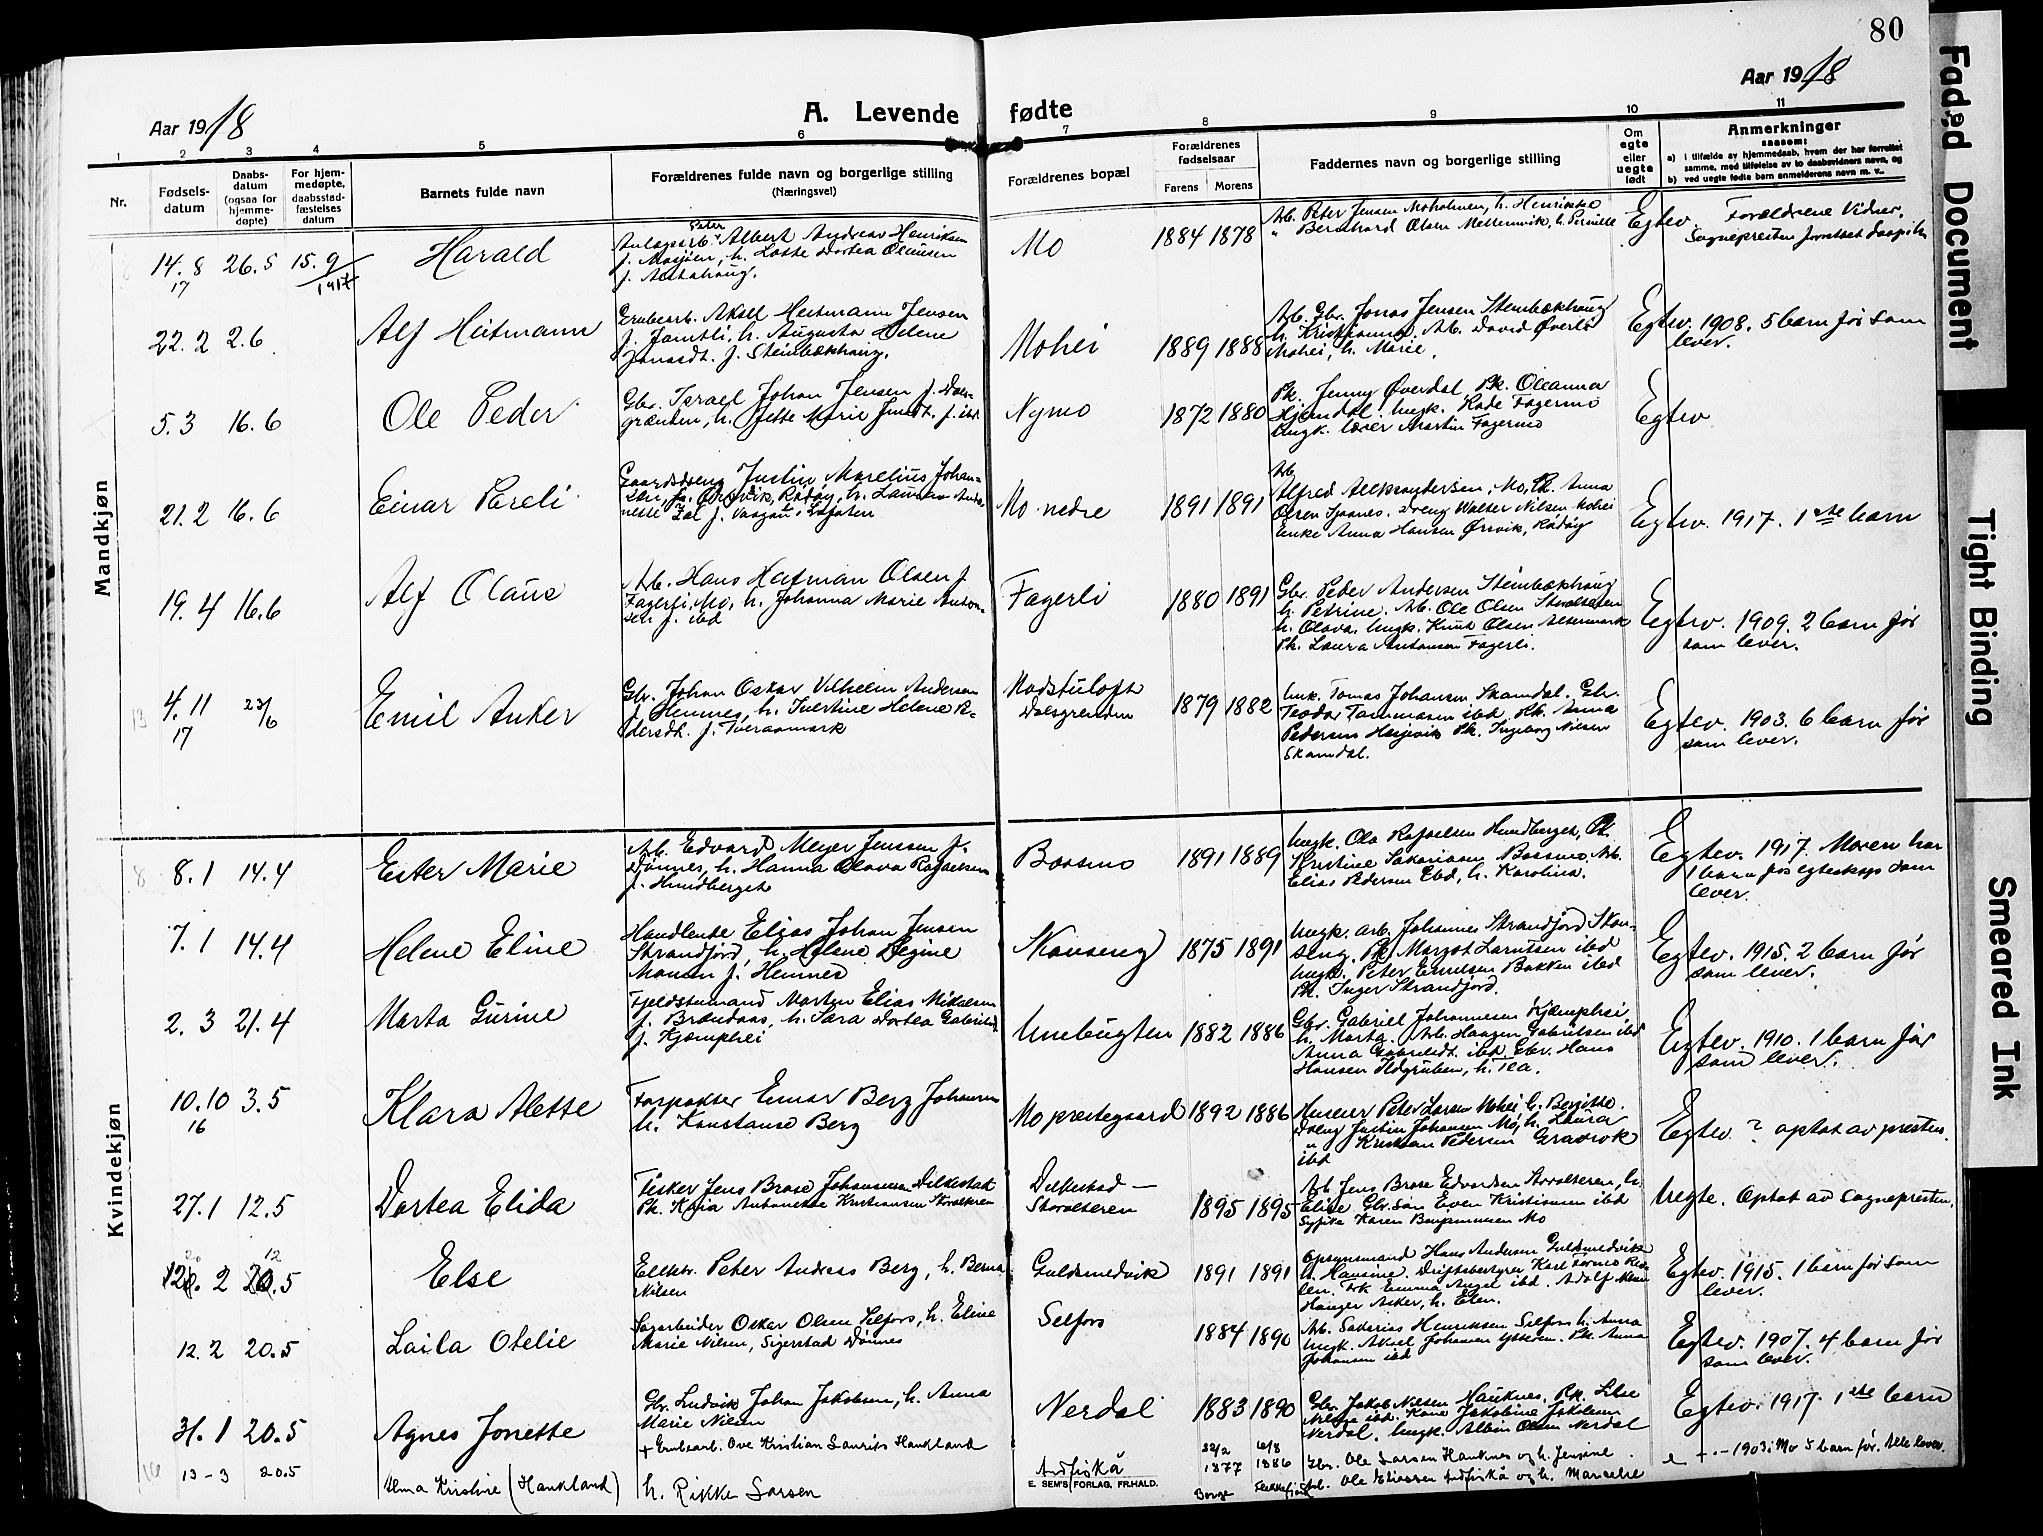 80
Aar 1918
A. Levende fødte
Aar 1918
1 2 3 4 5 6 7 8 9 10 11
Nr.
Fødsels-
datum
Daabs-
datum
(ogsaa for
hjemme-
døpte)
For hjem-
medøpte,
daabsstad-
fæstelses
datum
Barnets fulde navn
Forældrenes fulde navn og borgerlige stilling
(Næringsvei)
Forældrenes bopæl
Forældrenes
fødselsaar
Farens Morens
Faddernes navn og borgerlige stilling
Om
egte
eller
uegte
født
Anmerkninger
saasom:
a) i tilfælde av hjemmedaab, hvem der har forrettet
samme, med tilføielse av to daabsvidners navn, og
b) ved uegte fødte barn anmelderens navn m. v..
Mandkjøn
14.8 26.5 15.9
17 1917
Harald
Peter
Anlægsarb. Albert Andreas Henriksen
f. Mosjøen, h. Lotte Dortea Olausen
Mo
1884 1878
Arb. Peter Jensen Moholmen, h. Henrikke
" Bernhard Olsen Mellemvik, h. Pernille
Egtev. Forældrene Vidner.
22.2 2.6
Alf Heitmann
Grubearb. Aksel Heitmann Jensen
f. Jamtli, h. Augusta Helene
Jonasdt. f. Steinbækhaug.
Mohei
1889 1888
Arb. Gbr. Jonas Jensen Steinbækhaug
h. Kristianna, Arb. David Øverli
Mohei, h. Marie.
Egtev. 1908. 5 barn før som
lever.
5.3 16.6
Ole Peder
Gbr. Israel Johan Jensen f. Dals-
grænden, h. Jette Marie Jensdt. f. ibd
Nymo
1872 1880
Pk. Jenny Øverdal, Pk. Oleanna
Hjemdal. Ungk. Rade Fagermo
Ungk. lærer Martin Fagermo
Egtev
21.2 16.6
Einar Pareli
Gaardsdreng Justin Marelius Johan-
Mo nedre
1891 1891
Arb.
Alfred Aleksandersen, Mo, Pk. Anna
Olsen . Dreng Walter Nilsen Mohei
Enke Anna Hansen Ørsvik, Rødøy
Egtev. 1917. 1ste barn
19.4 16.6
Alf Olaus
Arb. Hans Hatman Olsen f.
Fagerli, Mo, h. Johanna Marie Anton-
sen f. ibd
Fagerli
1880 1891
Gbr. Peder Andersen Steinbækhaug
h. Petrine. Arb. Ole Olsen Storalteren
h. Olava. Ungk. Knut Olsen Altermark
Pk. Laura Antonsen Fagerli.
Egtev. 1909. 2 barn før
som lever.
13
4.11 23/6
17
Emil Anker
Gbr. Johan Oskar Vilhelm Andersen
f. Hemnes, h. Juertine Helene P-
edersdt. f. Tveraamark
Dalsgrenden
1879 1882
Unk. Tomas Johansen Skamdal. Gbr.
Teodor Tommasen ibd, Pk. Anna
Pedersen Hasjevik Pk. Ingeborg Nilsen
Skamdal.
Egtev. 1903. 6 barn før
som lever.
Kvindekjøn
8
8.1 14.4
Ester Marie
Arb. Edvard Meyer Jenssen f.
Dønnes, h. Hanna Olava Rafaelsen
f. Hundberget
Bossmo
1891 1889
Ungk. Ola Rafaelsen Hundberget, Pk.
Kristine Sakariasen Bossmo, Arb.
Elias Pedersen ibd, h. Karolina.
Egtev. 1917. Moren har
1 barn før egteskap som
lever.
7.1 14.4
Helene Eline
Handlende Elias Johan Jensen
Strandjord, h. Helene Regine
Monsen f. Hemnes
Skonseng
1875 1891
Ungk. arb. Johannes Strandjord Skon-
seng, Pk. Margot Larntsen ibd
Ungk. Peter Emilsen Bakken ibd
Pk. Inger Strandjord.
Egtev. 1915. 2 barn før
som lever.
2.3 21.4
Marta Gurine
Fjeldstumand Morten Elias Mikalsen
f. Brændaas, h. Sara Dortea Gabrielsd.
f. Kjæmphei
Umebugten
1882 1886
Gbr. Gabriel Johannesen Kjæmphei,
h. Marta. Arb. Haagen Gabrielsen ibd
Anna Gabrielsdt. ibd. Gbr. Hans
Hansen Ildgruben, h. Tea.
Egtev. 1910. 1 barn før
som lever.
10.10 3.5
16
Klara Alette
Forpakter Einar Berg Johansen
h. Konstanse Berg
Mo prestegaard
1892 1886
Murer Peter Larsen Mohei, h. Bergitte.
Dreng Justin Johansen Mo, h. Laura
" Kristian Pedersen Gravvik
ibd
Egtev. ? optat av presten.
27.1 12.5
Dortea Elida
Fisker Jens Brose Johannesen Dilkestad
Pk. Kaja Antonette Kristiansen Storalteren
Dilkestad —
Storalteren
1895 1895
Arb. Jens Brose Edvardsen Storalteren, h.
Elise Gbr. søn Even Kristiansen ibd
Sypike Karen Benjaminsen Mo
Uegte. Optat av sognepresten.
2 20.5
Else
Elektr. Peter Andreas Berg, h. Berna
Nilsen
Guldsmedvik
1891 1891
Opsynsmand Hans Andersen Guldsmedvik
h. Hansine. Driftsbestyrer Karl
Hanger Asker, h. Elen.
Egtev. 1915. 1 barn før som
lever.
12.2 20.5
Laila Otelie
Sagarbeider Oskar Olsen Selfors, h. Eline
Marie Nilsen, Sigerstad Dønnes
Selfors
1884 1890
Arb. Sakarias Henriksen Selfors h. Anna
Ungk. Aksel Johansen Ytteren. Pk. Anna
Johansen ibd
Egtev. 1907. 4 barn før
som lever.
31.1 20.5
Agnes Jonette
Gbr. Ludvik Johan Jakobsen, h. Anna
Marie Nilsen
Nerdal
1883 1890
Gbr. Jakob Nilsen Hauknes. Pk. Lise
Nilsen ibd. Kone Jakobine Jakobsen
Nerdal. Ungk. Albin Olsen Nerdal
Egtev. 1917. 1ste barn
16
13-3 20.5
Alma Kristine (Hankland)
+ Grubearb. Ove Kristian Laurits Hankland
h. Rikke Larsen
Andfiskå
22/2 6/8
1877 1886
Borge Flekkefjord
Gbr. Ole Larsen Hauknes og h. Jensine.
Arb. Ole Eliassen Andfiskå og h. Marselie
e — · — 1903. Mo 5 barn før. Alle lever.
E. SEM'S FORLAG, FR.HALD.
Faded Document
Tight Binding
Smeared Ink